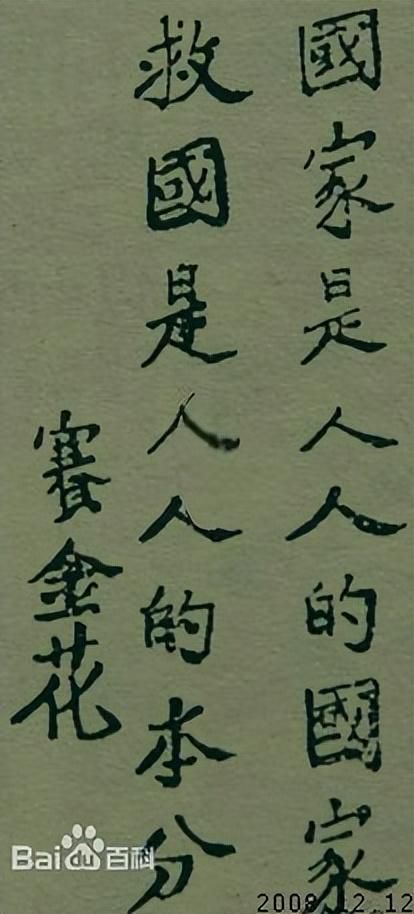 國家是人人的國家
救國是人人的本分
賽金花
Baidu百科
2008.12.12